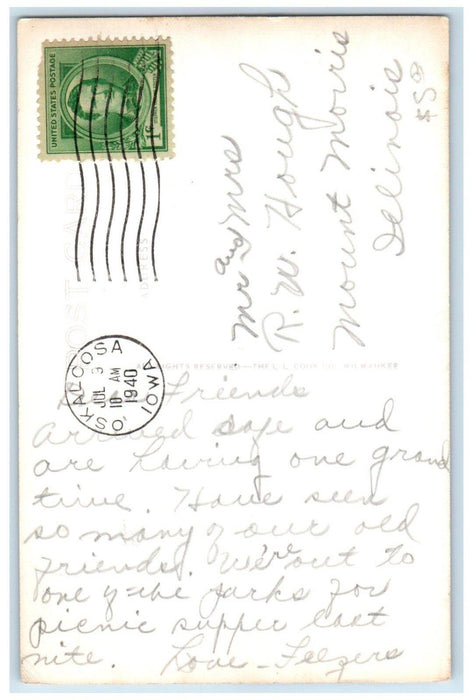 UNITED STATES POSTAGE
1¢
POST CARD
ADDRESS
OSKALOOSA
JUL 3
10 AM
1940
IOWA
Mr and Mrs
R. W. Hough
Mount Morris
Illinois
$5.00
RIGHTS RESERVED—THE L. L. COOK CO. MILWAUKEE
Friends
Arrived safe and
are having one grand
time. Have seen
so many of our old
friends. We're out to
one of the parks for
picnic supper last
nite. Love -